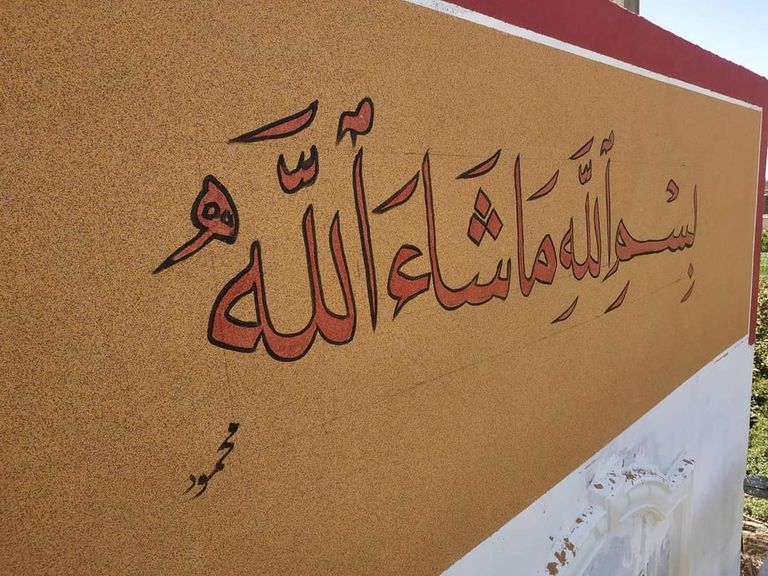 بِسْمِ ٱللَّهِ مَا شَاءَ ٱللَّهُ
محمود